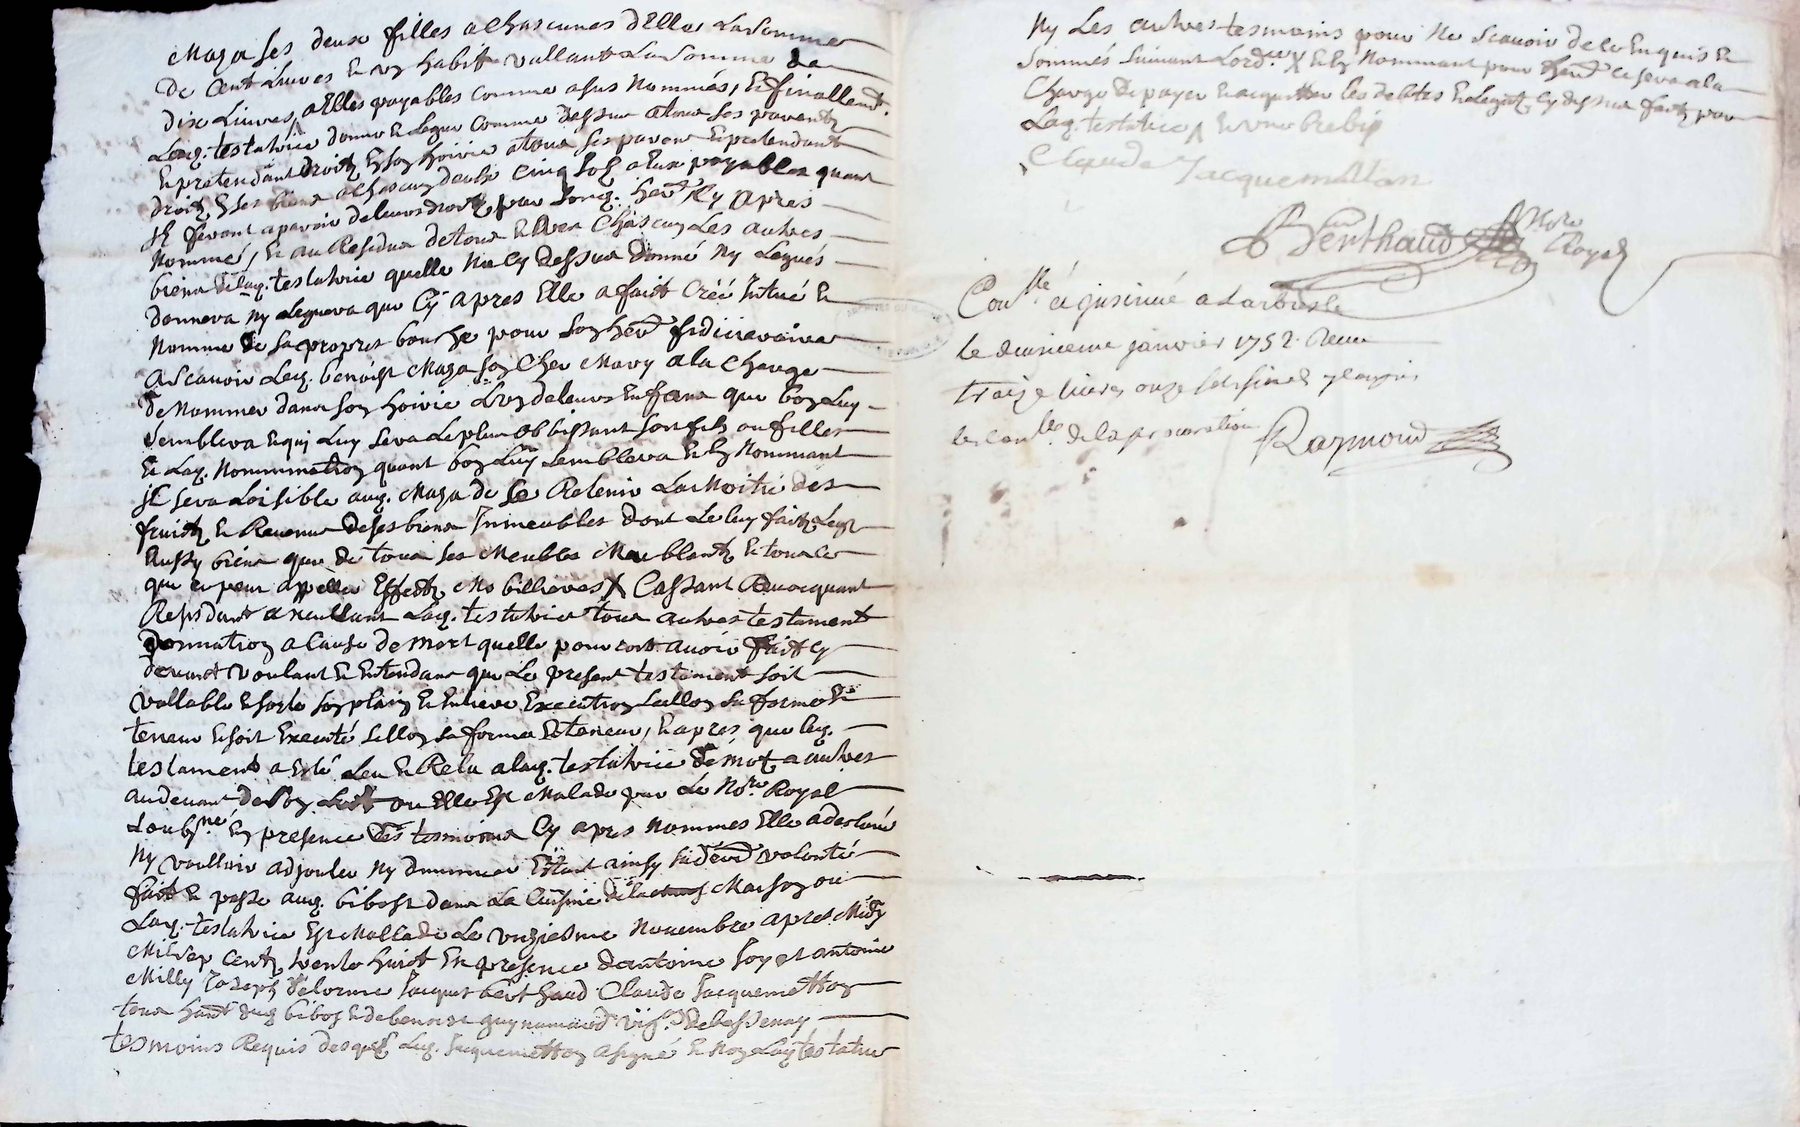 Maza ses deux filles a chascunes d'Elles La somme
de Cent Livres Et un habit vallant La somme de
dix Livres, a Elles payables comme asus Nommés, Et finallemt.
Lad. testatrice donne Et Legue Comme dessus a tous ses parents
Et pretendant droitz En son hoirie a tous ses parens Et pretendant
droitz En ses biens a chascun deulx cinq sols a Eux payables quant
Il feront aparoir de leurs droits par sond. hert. Cy apres
Nommé, Et au Residu de tous Et Chascun Les autres
biens de lad. testatrice quelle Na Cy dessus donné Ny Legués
donnera Ny Leguera que Cy apres Elle a fait Créé Intué Et
Nommé de sa propre bouche pour son hert. fidiciaire
a scavoir Led. benoist Maza son Cher Mary a la Charge
de Nommer dans son hoirie L'un de leurs Enfans que bon Luy
semblera Et qui Luy sera Le plus obbissant soit fils ou filles
Et Lad. Nommination quant bon Luy semblera Et En Nommant
Il sera Loisible aud. Maza de se Retenir La Moitié des
fruits Et Revenus de ses biens Immeubles dont Le luy fait Legt
Aussy biens que de tous ses Meubles Meublants Et tous ce
que lon peut appeller Effects Mobillieres X Cassant Revocquant
Lad. testatrice tous autres testament
donnation a Cause de mort quelle pourroit avoir fait Cy
devant voulant Et Entendant que Le present testament soit
vallable Et sorte son plain Et Entiere Execution sellon sa forme Et
teneur Et soit Executé sellon sa forme Et teneur, Et apres que led.
testament a Esté Leu Et Relu a lad. testatrice de mot a autres
au devant de son Lict ou Elle Est Malade par Le Nore. Royal
soubsne. En presence des tesmoins Cy apres Nommés Elle a desclaré
Ny voulloir adjouter Ny diminuer Estant ainsy sa derd. volonté
fait Et passé aud. bibost dans La Cuisine de la Maison ou
Lad. testatrice Est Mallade Le unziesme Novembre apres Midy
Mil sep Cents trente huict En presence d'antoine soy et antoine
Milly Joseph delorme Jacques berthaud Claude Jacquemetton
tous hant. dud. bibost Et de benoist guynamard vign. de bessenay
tesmoins Requis desquels Led. Jacquemetton a signé Et Non Lad. testatrice
Ny Les autres tesmoins pour Ne scavoir de ce Enquis Et
sommés suivant Lordce. X Et En Nommant pour hert. Ce sera a la
Charge de payer Et acquitter les debtes Et Legats Cy dessus faits par
Lad. testatrice X Et une brebis
Claude Jacquemetton
Berthaud Nore Royal
Conllé et insinué a Larbresle
le deuxieme janvier 1752. Receu
traize livres onze sols six d. y compris
le conlle. de la procuration
Raymond